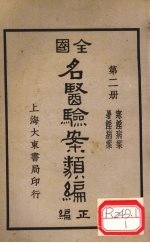 全國
名醫驗案類編
正編
第二册
寒證病案
暑證病案
上海大東書局印行
R249.1
1